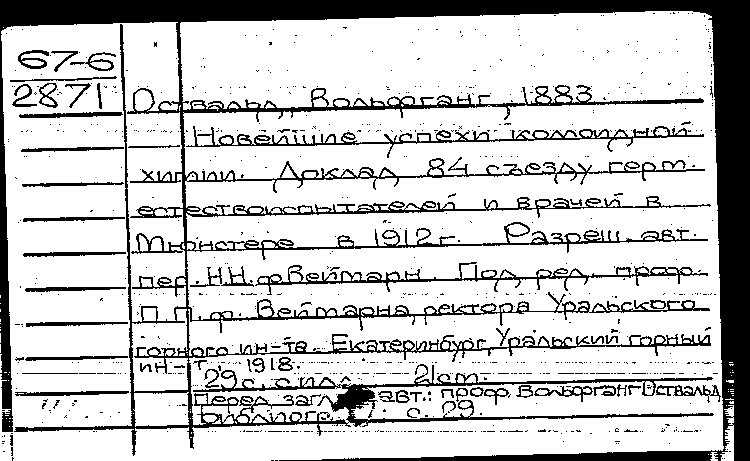 67-6
2871 Оствальд, Вольфганг, 1883.
Новейшие успехи коллоидной
химии. Доклад 84 съезду герм.
естествоиспытателей и врачей в
Мюнстере в 1912 г. Разреш. авт.
пер. Н.Н. ф Веймарн. Под ред. проф.
П.П. ф. Веймарна, ректора Уральского
горного ин-та. Екатеринбург, Уральский горный
ин-т, 1918.
29 с. с илл. 21 cm.
Перед загл. авт.: проф. Вольфганг Оствальд
Библиогр. с. 29.